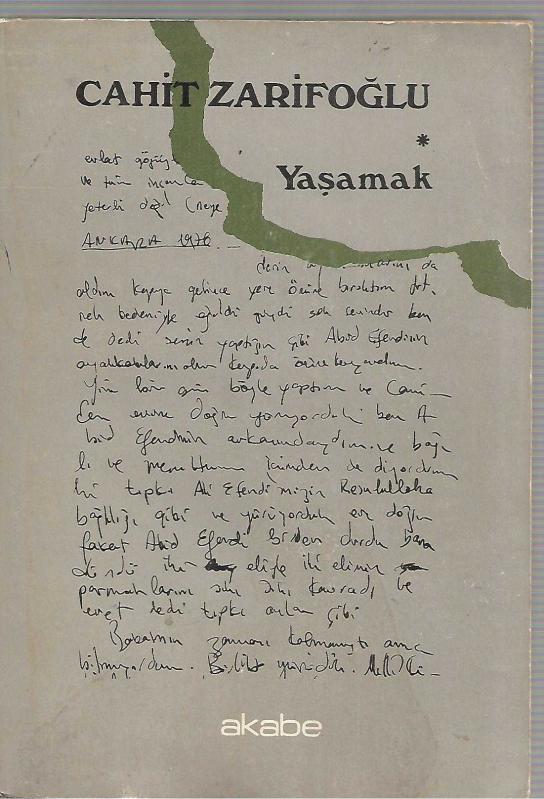 CAHİT ZARİFOĞLU
*
Yaşamak
evlat
ve tüm
yeterli değil (neye
ANKARA 1976
derin
aldım kapıya gelince yere önüne bıraktım
bedeniyle eğildi giydi sen ben
de dedi senin yaptığın gibi Abid Efendinin
ayakkabılarını alır kapıda önüne koyardım.
Yine bir gün böyle yaptım ve Cami-
den evine doğru yürüyorduk ben A
bid Efendinin arkasındaydım ve bağlı
lı ve memnun içimden de diyordum
ki tıpkı Ali Efendimizin Resulullaha
bağlılığı gibi ve yürüyorduk eve doğru
fakat Abid Efendi birden durdu bana
döndü iki eliyle iki elimin
parmaklarını sıkı sıkı kavradı ve
evet dedi tıpkı onlar gibi
Babamın zamanı kalmamıştı ama
bilmiyordum. Birlikte yürüdük.
akabe